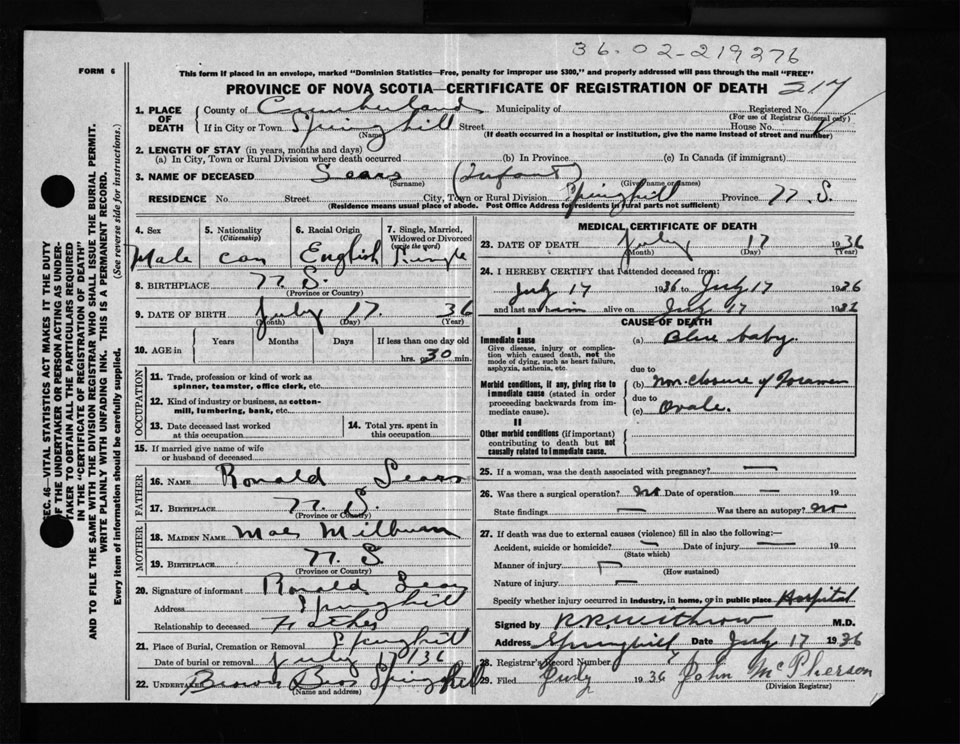 36.02-219276
FORM 6
This form if placed in an envelope, marked "Dominion Statistics—Free, penalty for improper use $300," and properly addressed will pass through the mail "FREE"
PROVINCE OF NOVA SCOTIA—CERTIFICATE OF REGISTRATION OF DEATH 217
1. PLACE OF DEATH County of Cumberland Municipality of Registered No.
(For use of Registrar General only)
If in City or Town Springhill Street House No.
(Name) (If death occurred in a hospital or institution, give the name instead of street and number)
2. LENGTH OF STAY (in years, months and days)
(a) In City, Town or Rural Division where death occurred (b) In Province (c) In Canada (if immigrant)
3. NAME OF DECEASED Sears (Infant)
(Surname) (Given name or names)
RESIDENCE No Street City, Town or Rural Division Springhill Province N.S.
(Residence means usual place of abode. Post Office Address for residents in rural parts not sufficient)
4. Sex 5. Nationality 6. Racial Origin 7. Single, Married, Widowed or Divorced
(Citizenship) (write the word)
Male Can English Single
8. BIRTHPLACE N.S.
(Province or Country)
9. DATE OF BIRTH July 17. 36
(Month) (Day) (Year)
10. AGE in Years Months Days If less than one day old
hrs. or 30 min.
OCCUPATION
11. Trade, profession or kind of work as spinner, teamster, office clerk, etc.
12. Kind of industry or business, as cotton-mill, lumbering, bank, etc.
13. Date deceased last worked at this occupation
14. Total yrs. spent in this occupation
15. If married give name of wife or husband of deceased
FATHER
16. NAME Ronald Sears
17. BIRTHPLACE N.S.
(Province or Country)
MOTHER
18. MAIDEN NAME Mae Milburn
19. BIRTHPLACE N.S.
(Province or Country)
20. Signature of informant Ronald Sears
Address Springhill
Relationship to deceased Father
21. Place of Burial, Cremation or Removal Springhill
Date of burial or removal July 17/36
22. UNDERTAKER Brown Bros Springhill
(Name and address)
MEDICAL CERTIFICATE OF DEATH
23. DATE OF DEATH July 17 1936
(Month) (Day) (Year)
24. I HEREBY CERTIFY that I attended deceased from:
July 17 1936 to July 17 1936
and last saw him alive on July 17 1936
CAUSE OF DEATH
I
Immediate cause (a) Blue baby
Give disease, injury or complication which caused death, not the mode of dying, such as heart failure, asphyxia, asthenia, etc.
due to
Morbid conditions, if any, giving rise to immediate cause (stated in order proceeding backwards from immediate cause)
(b) Non-closure of Foramen
due to
(c) Ovale.
II
Other morbid conditions (if important) contributing to death but not causally related to immediate cause.
25. If a woman, was the death associated with pregnancy? —
26. Was there a surgical operation? no Date of operation — 19
State findings — Was there an autopsy? no
27. If death was due to external causes (violence) fill in also the following:—
Accident, suicide or homicide? — Date of injury — 19
(State which)
Manner of injury
(How sustained)
Nature of injury —
Specify whether injury occurred in industry, in home, or in public place Hospital
Signed by R.R. Withrow M.D.
Address Springhill Date July 17 1936
28. Registrar's Record Number
29. Filed July 1936 John McPherson
(Division Registrar)
SEC. 46—VITAL STATISTICS ACT MAKES IT THE DUTY
OF THE UNDERTAKER OR PERSON ACTING AS UNDERTAKER TO OBTAIN ALL THE PARTICULARS REQUIRED
IN THE "CERTIFICATE OF REGISTRATION OF DEATH"
AND TO FILE THE SAME WITH THE DIVISION REGISTRAR WHO SHALL ISSUE THE BURIAL PERMIT.
WRITE PLAINLY WITH UNFADING INK. THIS IS A PERMANENT RECORD.
Every item of information should be carefully supplied. (See reverse side for instructions.)